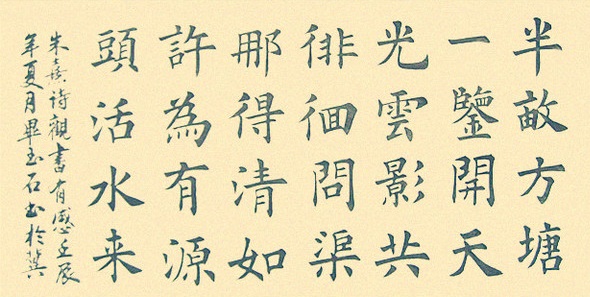 半畝方塘
一鑒開天
光雲影共
徘徊問渠
那得清如
許為有源
頭活水来
朱熹诗觀書有感壬辰
年夏月畢玉石书於冀